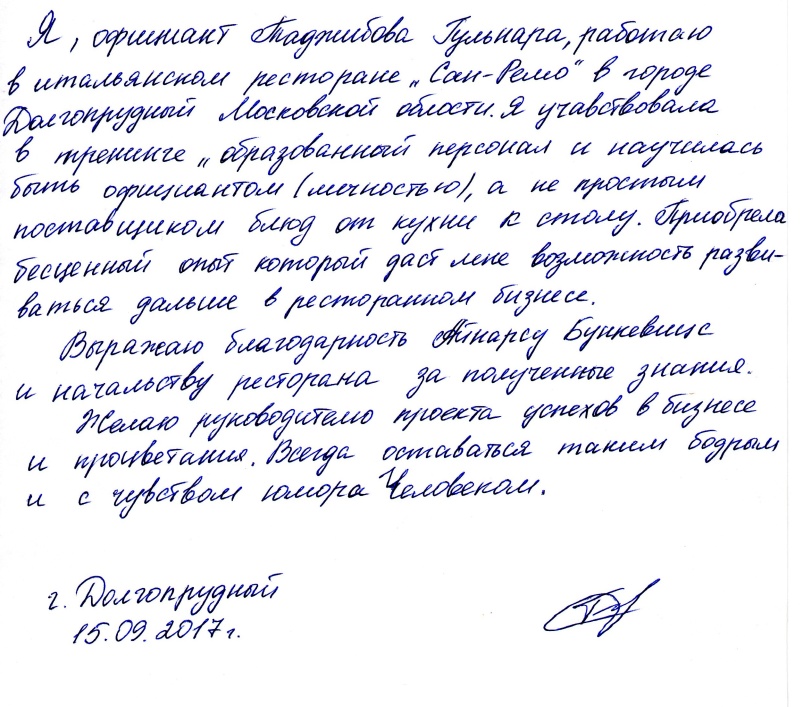 Я, официант Таджибова Гульнара, работаю
в итальянском ресторане „Сан-Ремо“ в городе
Долгопрудный Московской области. Я учавствовала
в тренинге „образованный персонал и научилась
быть официантом (личностью), а не простым
поставщиком блюд от кухни к столу. Приобрела
бесценный опыт который даст мне возможность разви-
ваться дальше в ресторанном бизнесе.
Выражаю благодарность Айнарсу Бункевицс
и начальству ресторана за полученные знания.
Желаю руководителю проекта успехов в бизнесе
и процветания. Всегда оставаться таким бодрым
и с чувством юмора Человеком.
г. Долгопрудный
15.09.2017г.